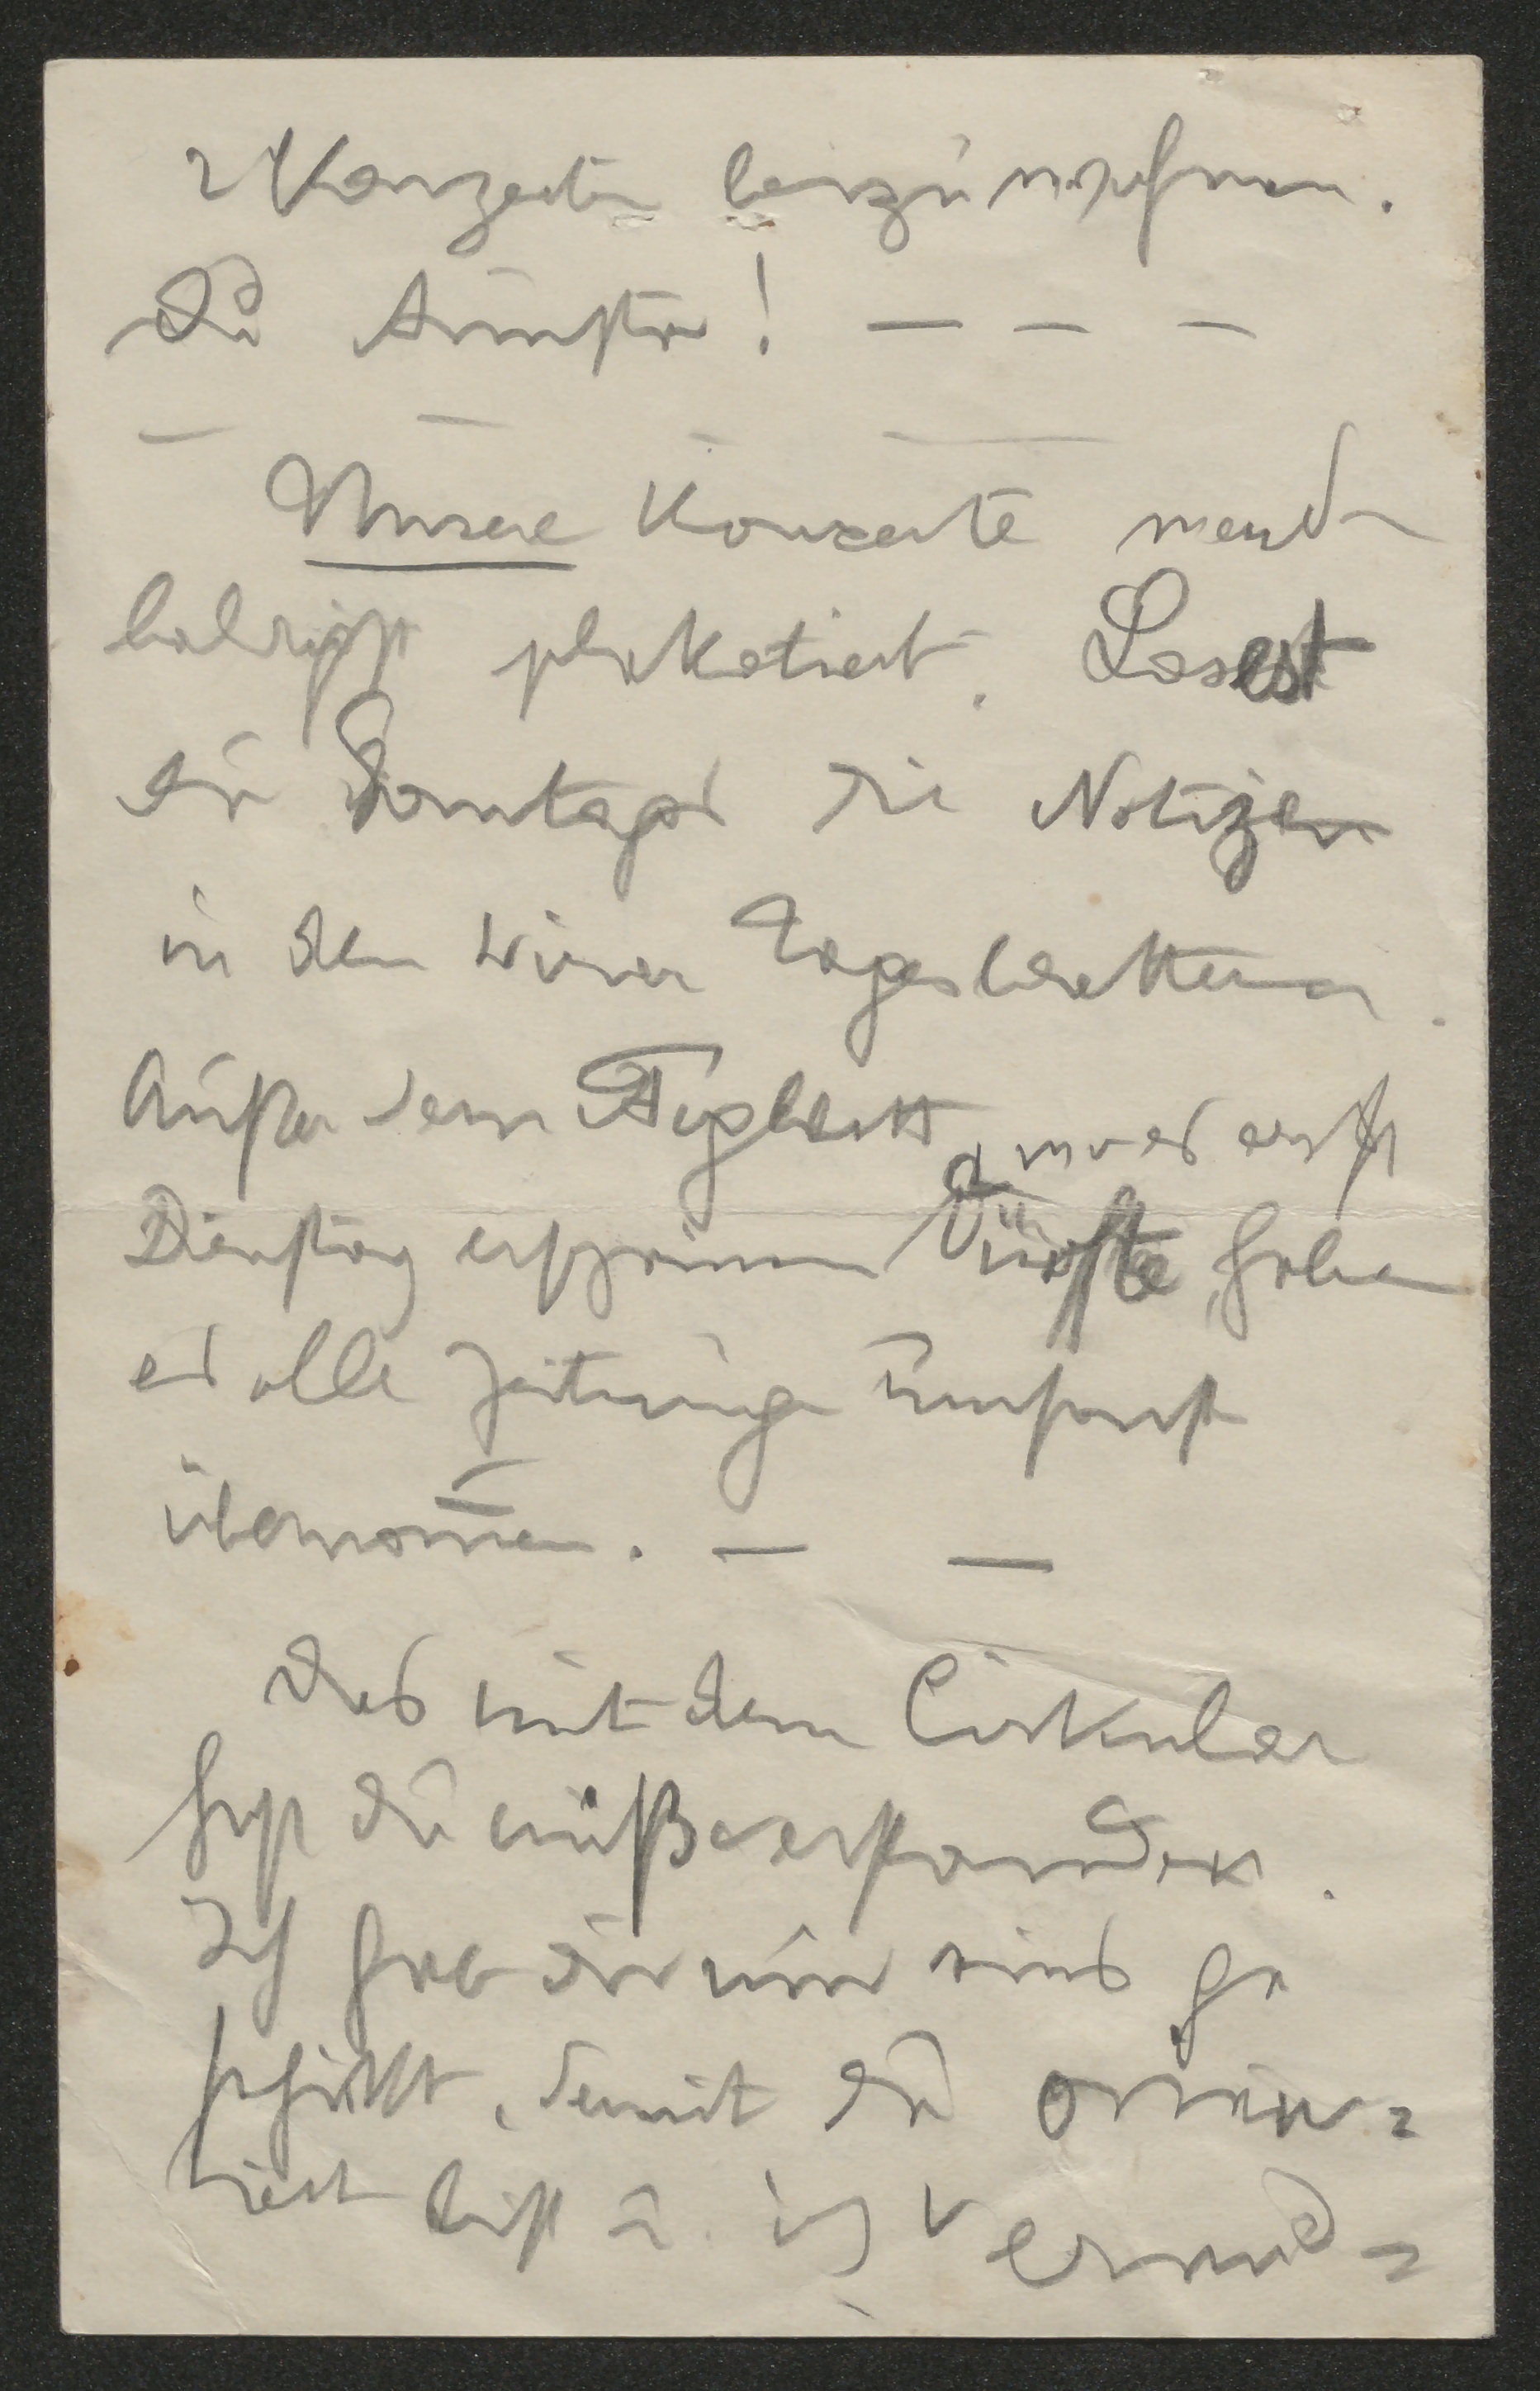 2 Konzerten beizuwohnen.
Du Ärmster! — — —
— — — —
Unsere Konzerte werden
baldigst plakatiert. Lasest
du Sonntags die Notizen
in den Wiener Tagesblättern.
Außer dem Tagblatt, wo es erst
Dienstag erscheinen dürfte, haben
es alle Zeitungen umsonst
übernom̅en. — —
Das mit dem Cirkular
hast du mißverstanden.
Ich hab dir nur eins ge
schickt, damit du orien=
tiert bist u. ich